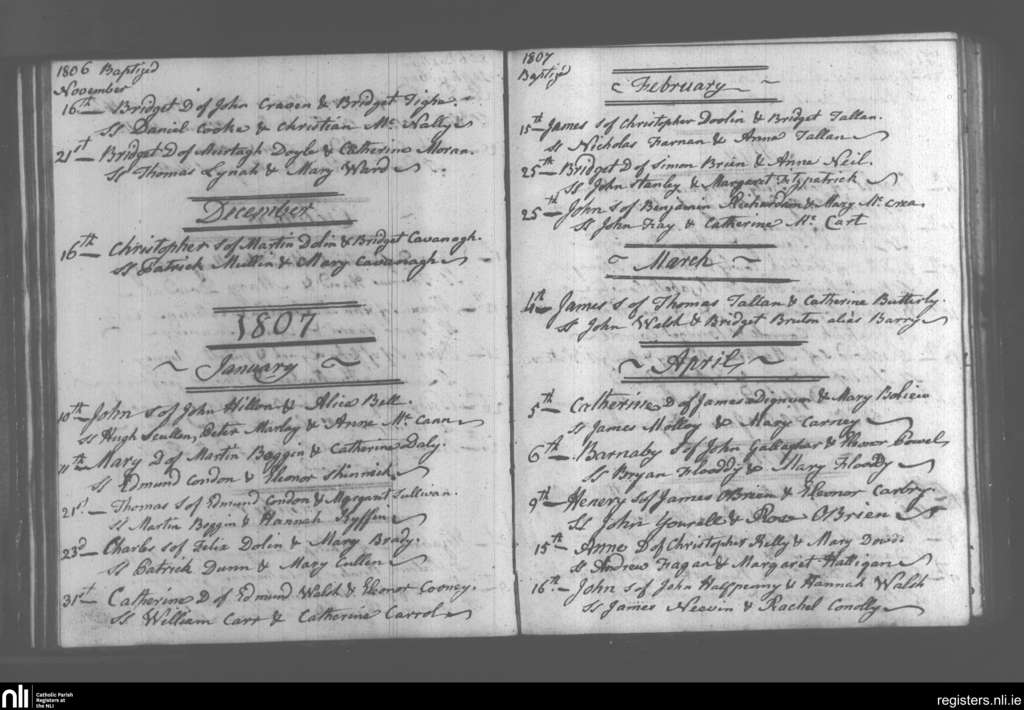 1806 Baptiz'd
November
16th Bridget D of John Craven & Bridget Tighe
Ss Daniel Cooke & Christian Mc Nally
21st Bridget D of Murtagh Doyle & Catherine Moran.
Ss Thomas Lynah & Mary Ward
December
16th Christopher S of Martin Dolin & Bridget Cavanagh.
Ss Patrick Mullin & Mary Cavanagh
1807
January
10th John S of John Hilton & Alice Bell.
Ss Hugh Scullen, Peter Marley & Anne Mc Cann
11th Mary D of Martin Boggin & Catherine Daly.
Ss Edmund Condon & Eleonor Shinnick
21st Thomas S of Edmund Condon & Margaret Sullivan.
Ss Martin Boggin & Hannah
23d Charles S of Felix Dolin & Mary Brady.
Ss Patrick Dunn & Mary Cullen
31st Catherine D of Edmund Walsh & Eleonor Cooney.
Ss William Carr & Catherine Carrol
1807
Baptiz'd
February
15th James S of Christopher Doolin & Bridget Tallan.
Ss Nicholas Farnan & Anne Tallan
25th Bridget D of Simon Breen & Anne Neil.
Ss John Stanley & Margaret Fitzpatrick
25th John S of Benjamin Richardson & Mary Mc Crea.
Ss John Fay & Catherine Mc Cart
March
4th James S of Thomas Tallan & Catherine Butterly.
Ss John Walsh & Bridget Bruton alias Barry
April
5th Catherine D of James Dignum & Mary
Ss James Molloy & Mary Carney
6th Barnaby S of John Gallaghar & Elenor Powel,
Ss Bryan Floody & Mary Floody
9th Henery S of James OBrien & Eleonor Carbry.
Ss John Yourell & Rose OBrien
15th Anne D of Christopher Kelly & Mary Dowd.
Ss Andrew Fagan & Margaret Halligan
16th John S of John Halfpenny & Hannah Walsh
Ss James Neevin & Rachel Conolly
nli
Catholic Parish
Registers at
the NLI
registers.nli.ie